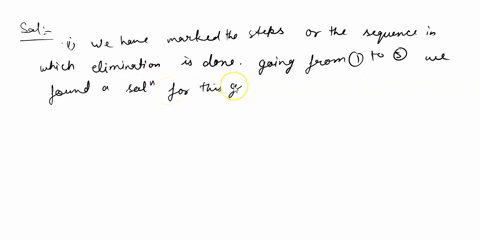 Sol:-
i) we have marked the steps or the sequence in
which elimination is done. going from ① to ⑤ we
found a solⁿ for this g